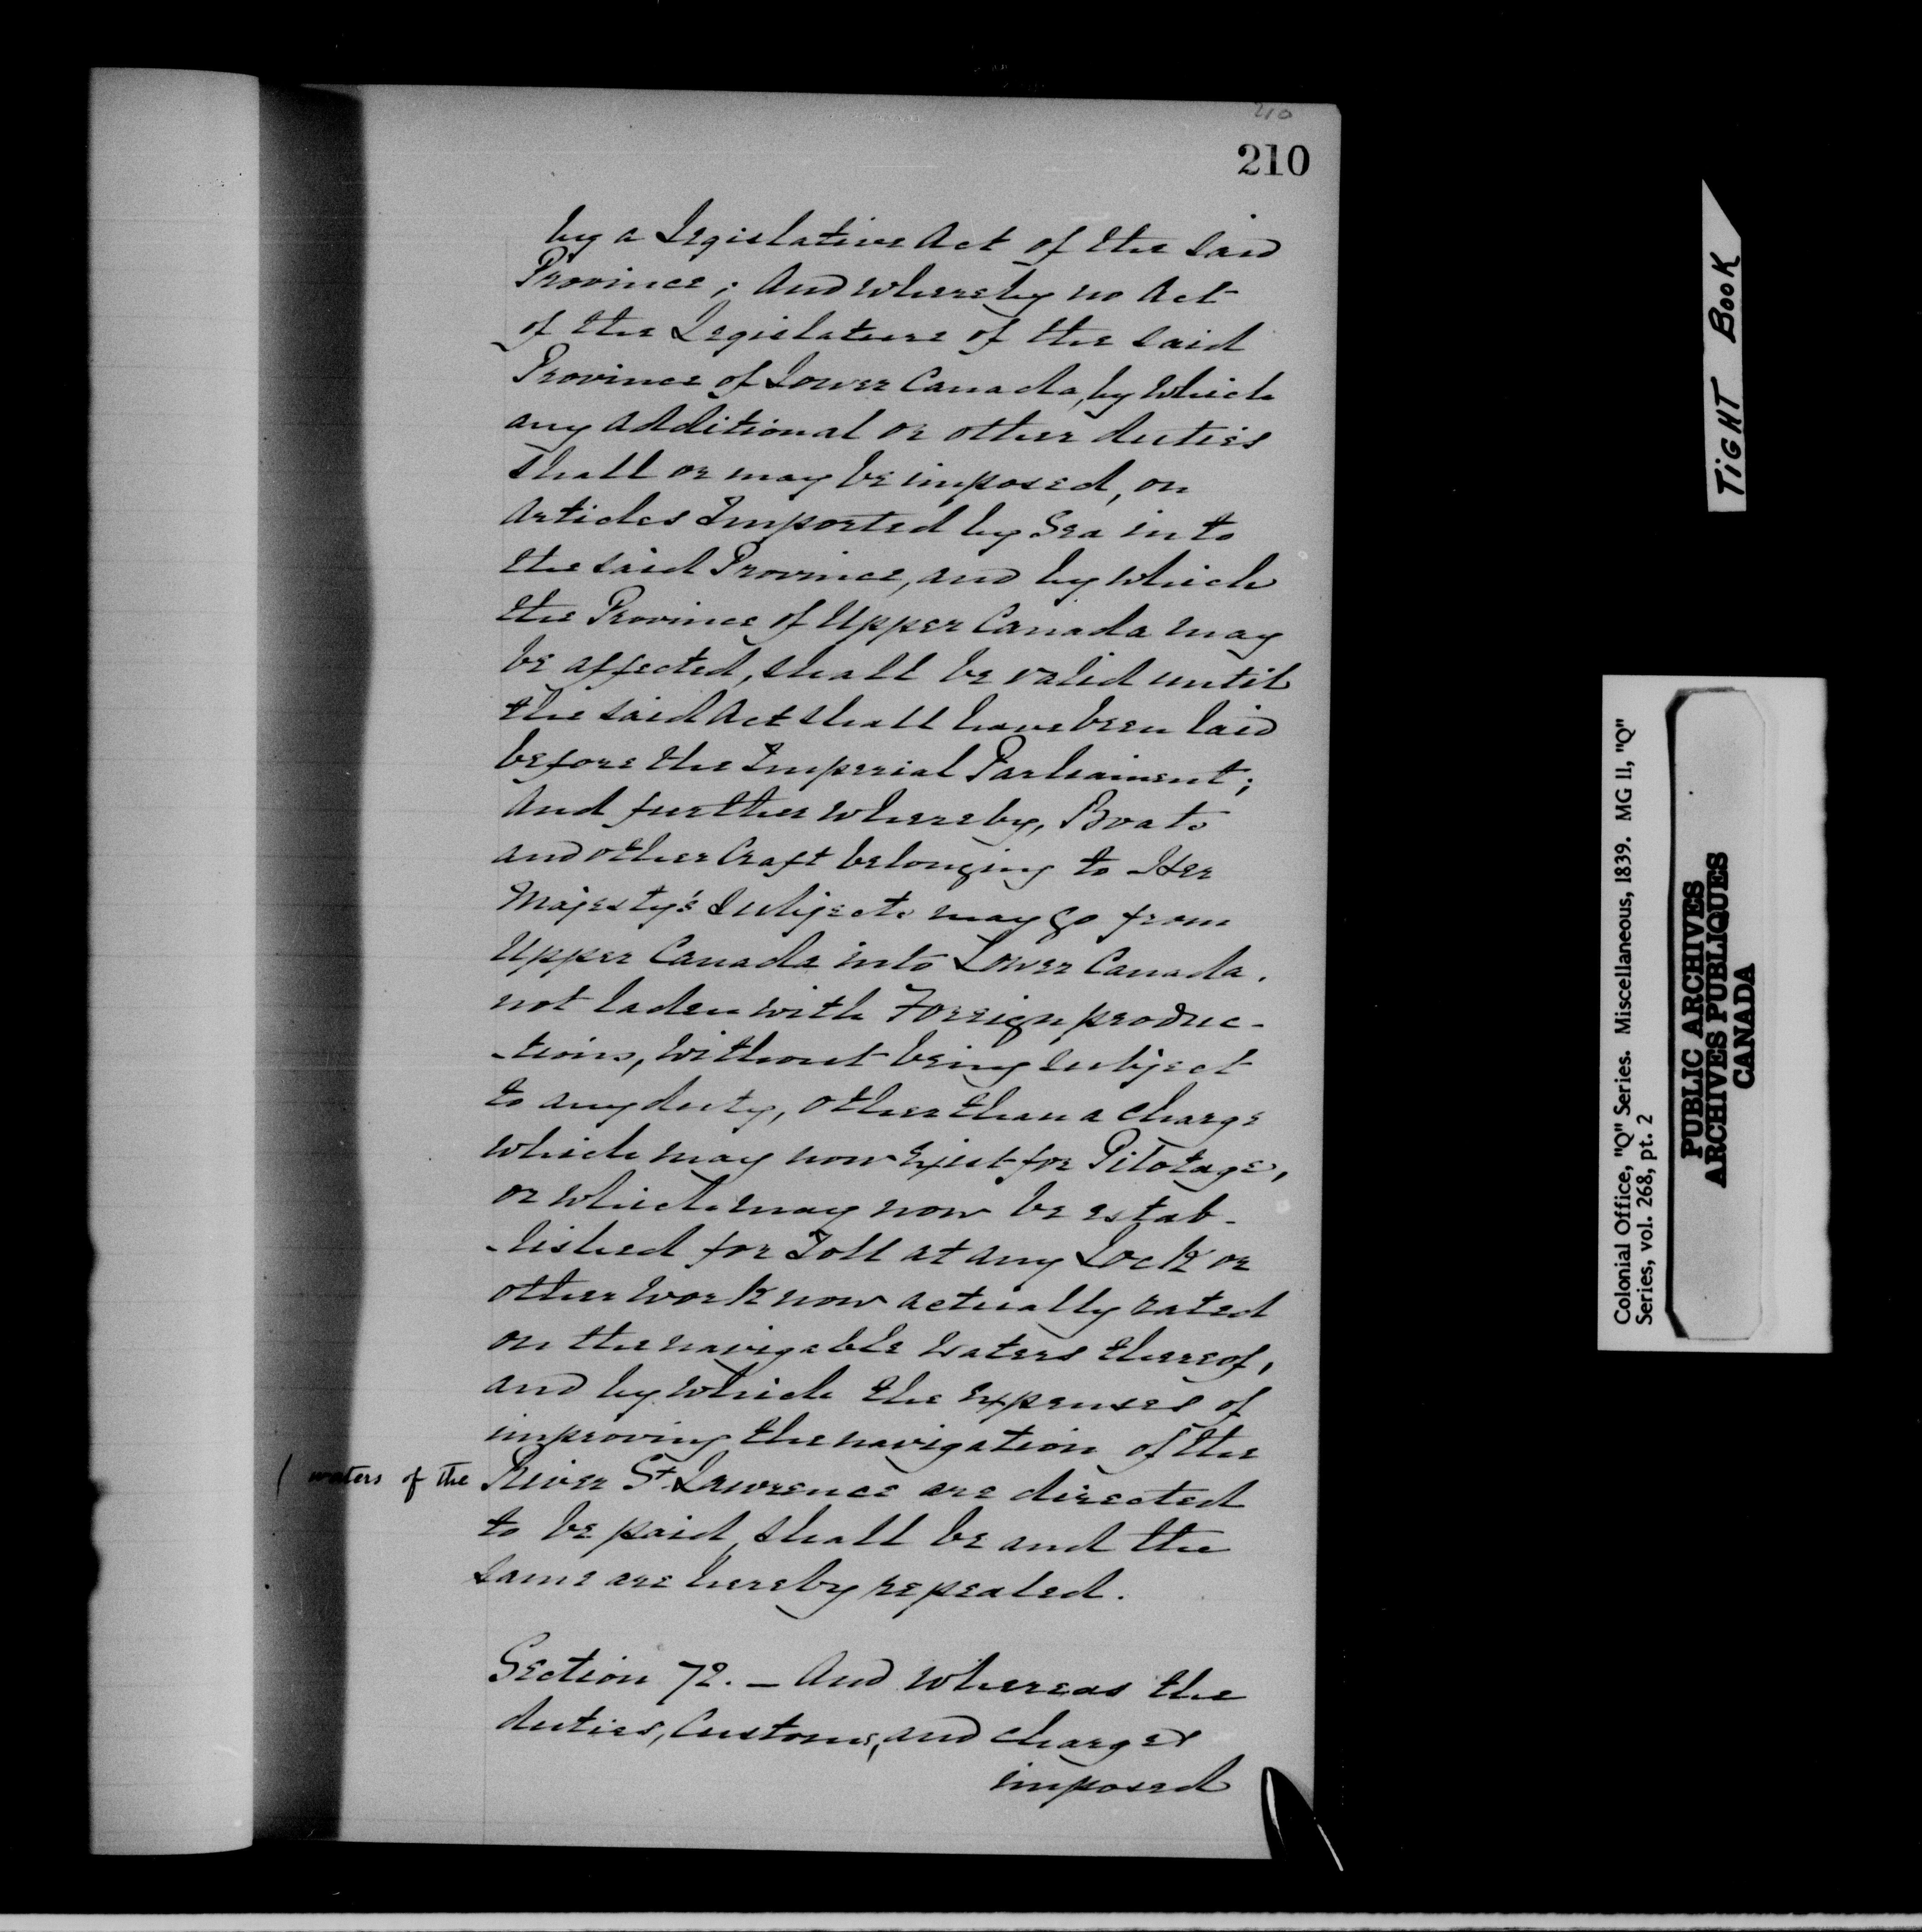 210
210
by a Legislative Act of the said
Province; And whereby no Act
of the Legislature of the said
Province of Lower Canada, by which
any additional or other duties
shall or may be imposed, on
Articles Imported by Sea into
the said Province, and by which
the Province of Upper Canada may
be affected, shall be valid until
the said Act shall have been laid
before the Imperial Parliament;
And further whereby, Boats
and other Craft belonging to Her
Majesty's Subjects may go from
Upper Canada into Lower Canada,
not laden with Foreign produc-
-tions, without being subject
to any duty, other than a charge
which may now exist for Pilotage,
or which may now be estab-
-lished for Toll at any Lock or
other work now actually rated
on the navigable waters thereof,
and by which the expenses of
improving the navigation of the
( waters of the River St. Lawrence are directed
to be paid, shall be and the
same are hereby repealed.
Section 72. — And whereas the
duties, Customs, and charges
imposed
TIGHT BOOK
Colonial Office, "Q" Series. Miscellaneous, 1839. MG 11, "Q"
Series, vol. 268, pt. 2
PUBLIC ARCHIVES
ARCHIVES PUBLIQUES
CANADA